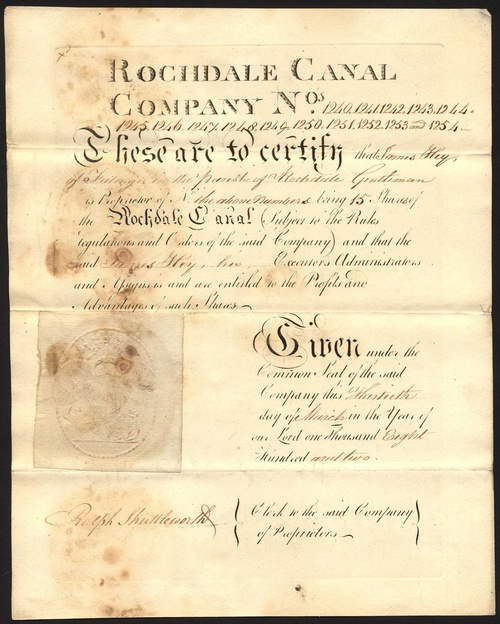 Rochdale Canal
Company Nos. 1240.1241.1242.1243.1244.
1245.1246.1247.1248.1249.1250.1251.1252.1253 and 1254.
These are to certify that James Hey
of in the parish of Rochdale Gentleman
is Proprietor of N the above numbers being 15 Shares of
the Rochdale Canal (Subject to the Rules
Regulations and Orders of the said Company) and that the
said James Hey, his Executors Administrators
and Assigns is and are entitled to the Profits and
Advantages of such Shares
Given under the
Common Seal of the said
Company this Thirtieth
day of March in the Year of
our Lord one Thousand Eight
Hundred and two.
Ralph Shuttleworth
Clerk to the said Company
of Proprietors